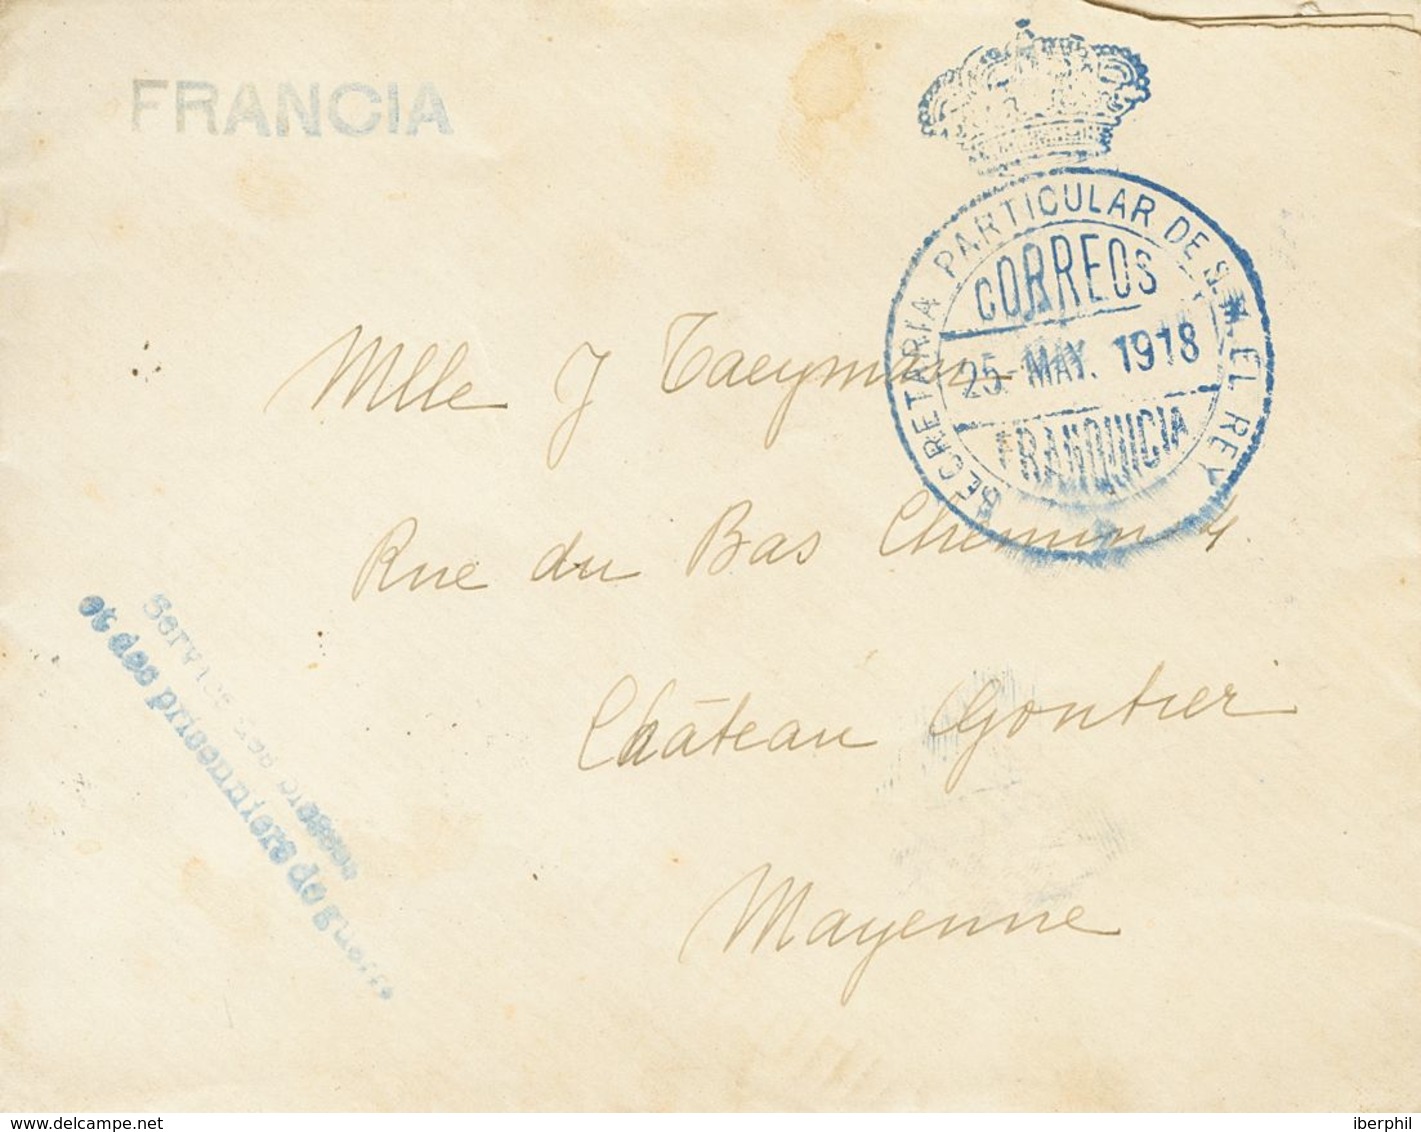 FRANCIA
SECRETARIA PARTICULAR DE S. M. EL REY
CORREOS
25. MAY. 1918
FRANQUICIA
Mlle J Taeyman
Rue du Bas Chemin 4.
Château Gontier
Mayenne
Service des blessés
et des prisonniers de guerre
www.delcampe.net
iberphil